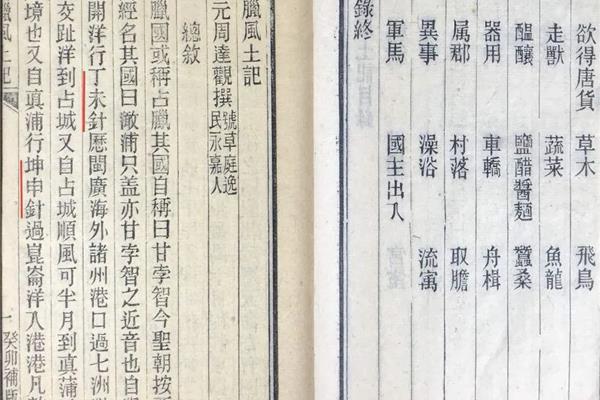 欲得唐貨 草木 飛鳥
走獸 蔬菜 魚龍
醞釀 鹽醋醬麵 蠶桑
器用 車轎 舟楫
属郡 村落 取膽
異事 澡浴 流寓
軍馬 國主出入
錄終
臘風土記
元周達觀撰 號草庭逸民永嘉人
總敘
臘國或稱占臘其自稱曰甘孛智今聖朝按
經名其國曰澉浦只盖亦甘孛智之近音也自
開洋行丁未針歷閩廣海外諸州港口過七洲
交趾洋到占城又自占城順風可半月到真蒲
境也又自真浦行坤申針過崑崙洋入港港凡
臘風土記 一 癸卯補版